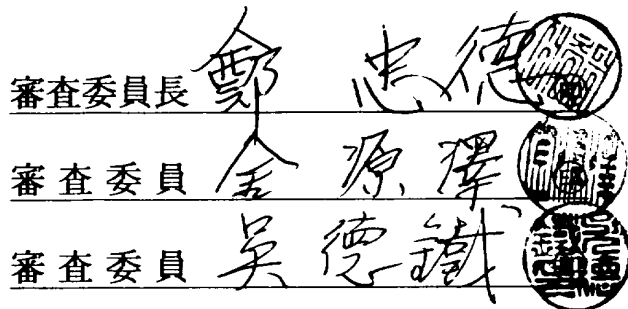 審査委員長 鄭忠德
審査委員 金源澤
審査委員 吳德鐵